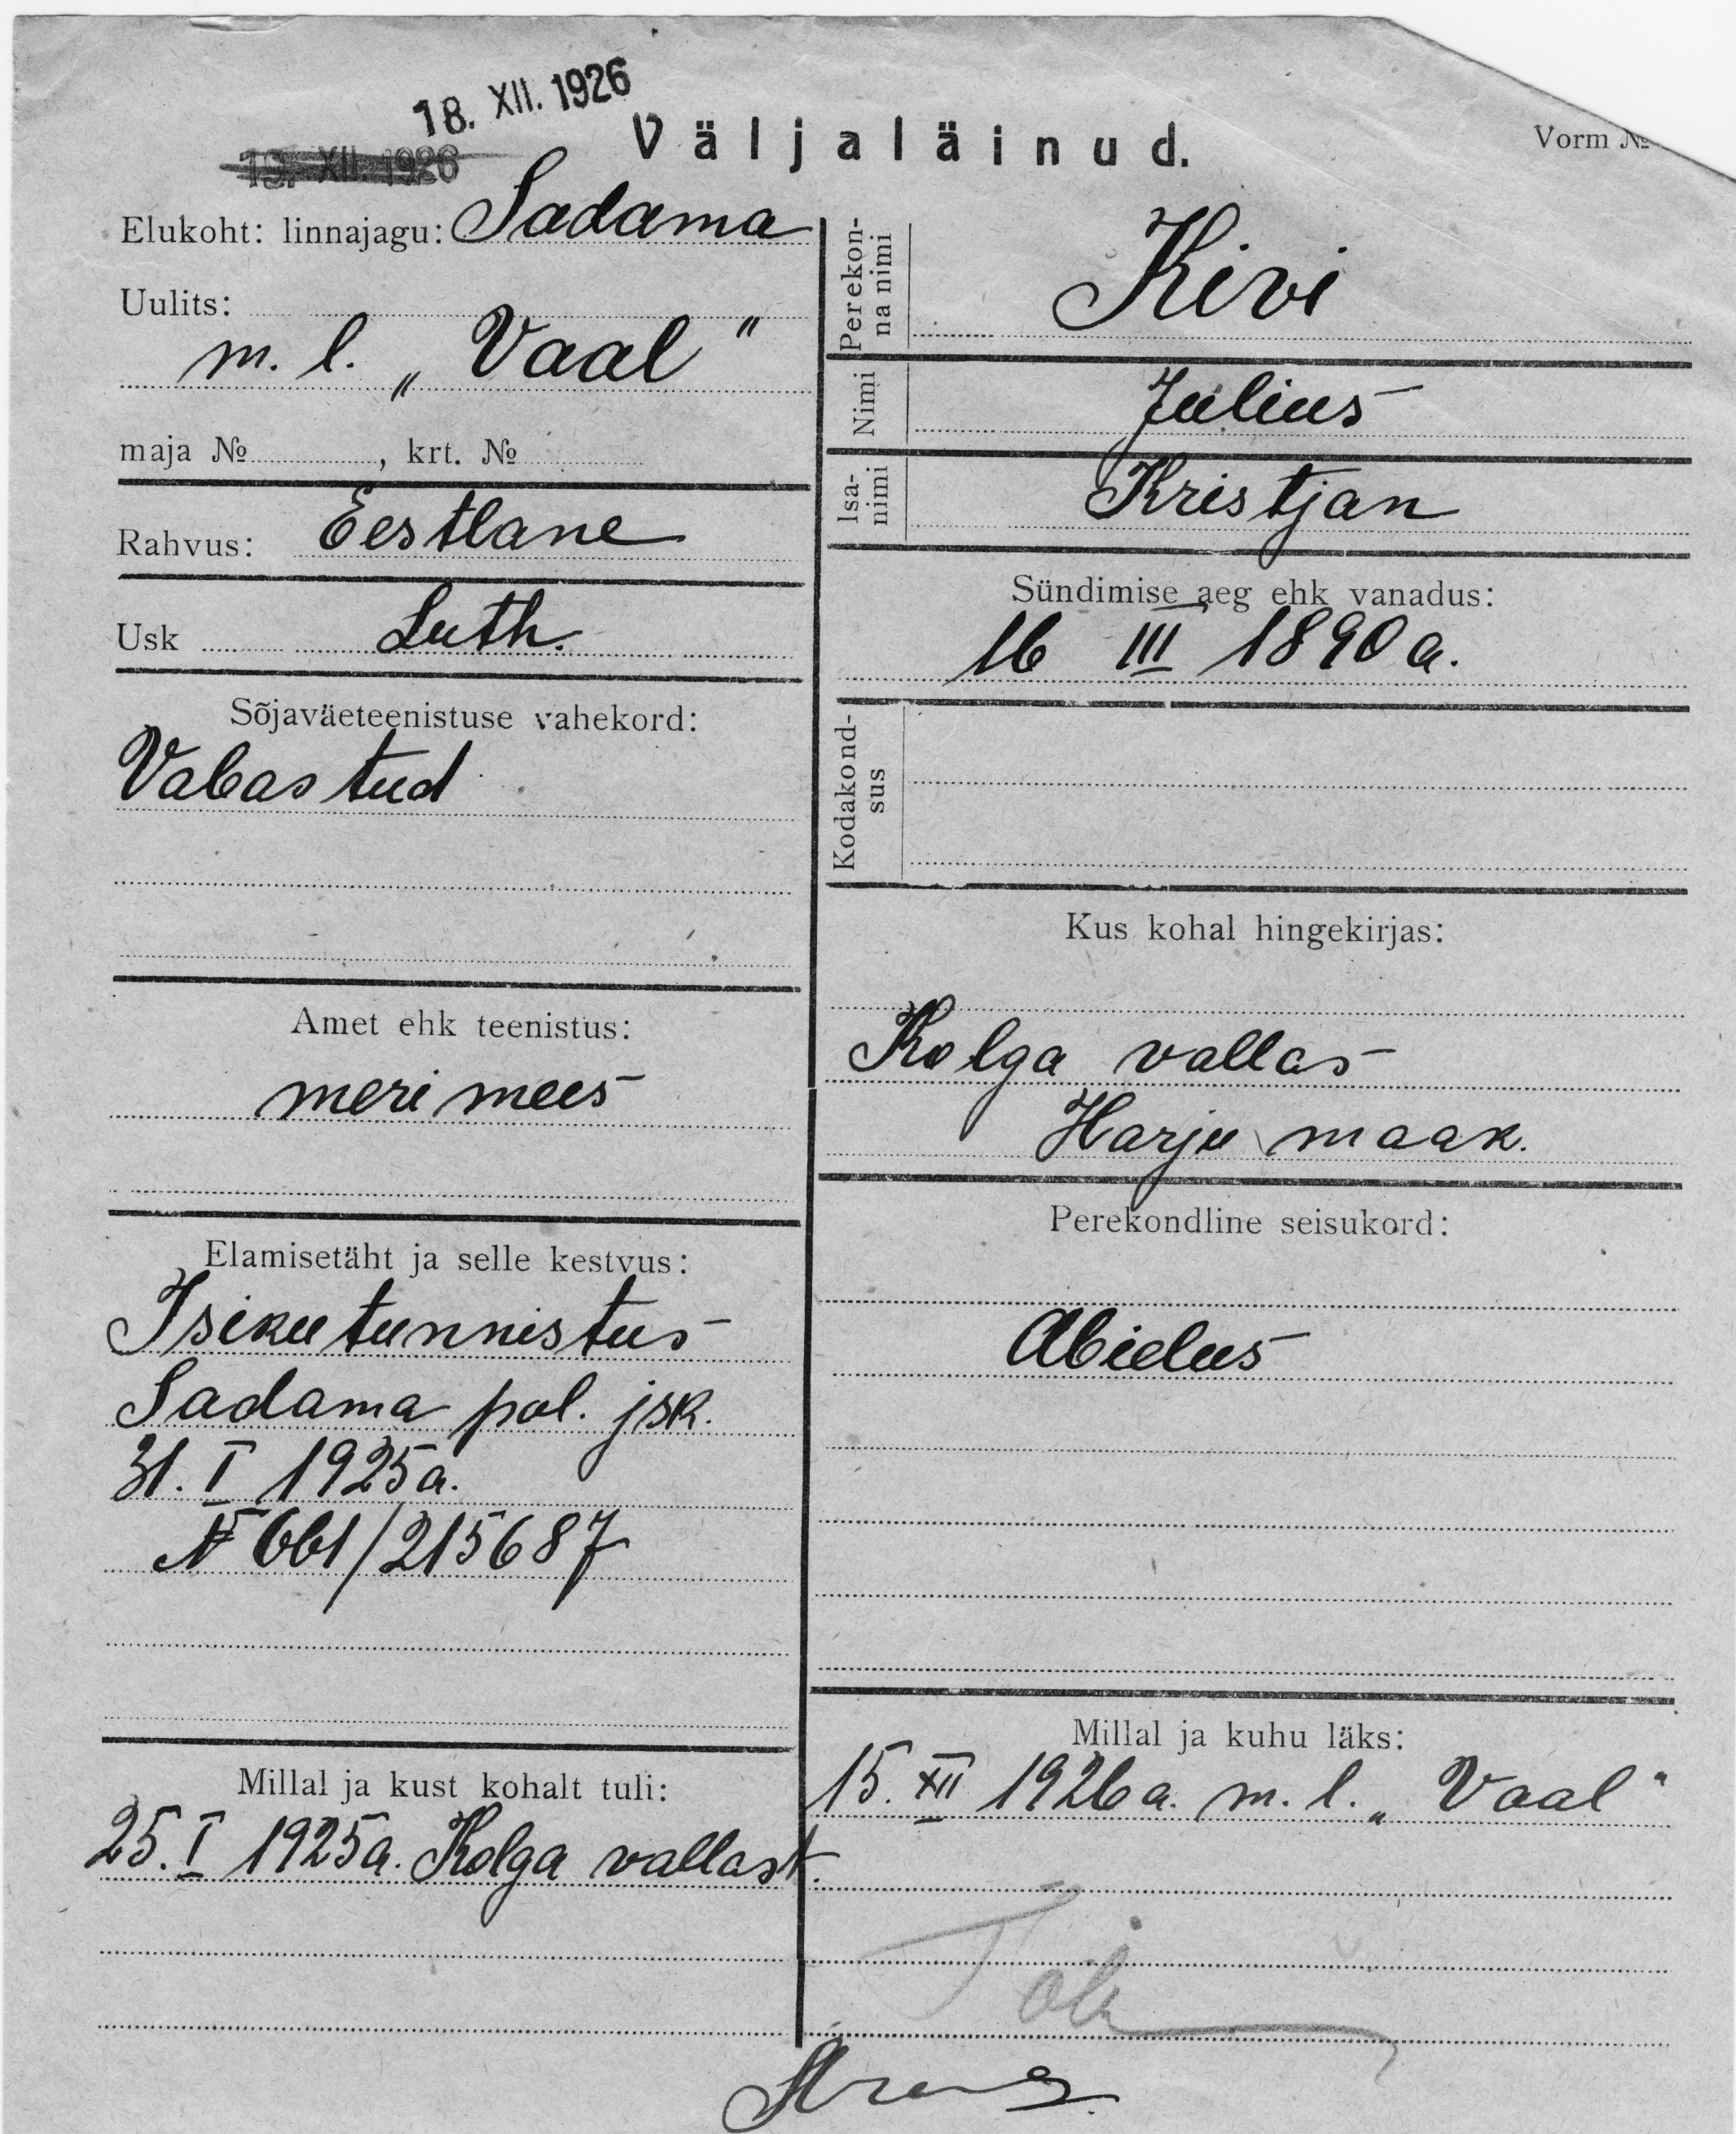 18. XII. 1926
19. XII. 1926
Väljaläinud.
Vorm №
Elukoht: linnajagu: Sadama
Uulits:
m. l. „Vaal“
maja № , krt. №
Rahvus: Eestlane
Usk Luth.
Sõjaväeteenistuse vahekord:
Vabastud
Amet ehk teenistus:
merimees
Elamisetäht ja selle kestvus:
Isikutunnistus
Sadama pol. jsk.
31. I 1925 a.
№ 661/215687
Millal ja kust kohalt tuli:
25. I 1925 a. Kolga vallast.
Perekon-
na nimi
Kivi
Nimi
Julius
Isa-
nimi
Kristjan
Sündimise aeg ehk vanadus:
16 III 1890 a.
Kodakond-
sus
Kus kohal hingekirjas:
Kolga vallas
Harju maak.
Perekondline seisukord:
Abielus
Millal ja kuhu läks:
15. XII 1926 a. m. l. „Vaal“